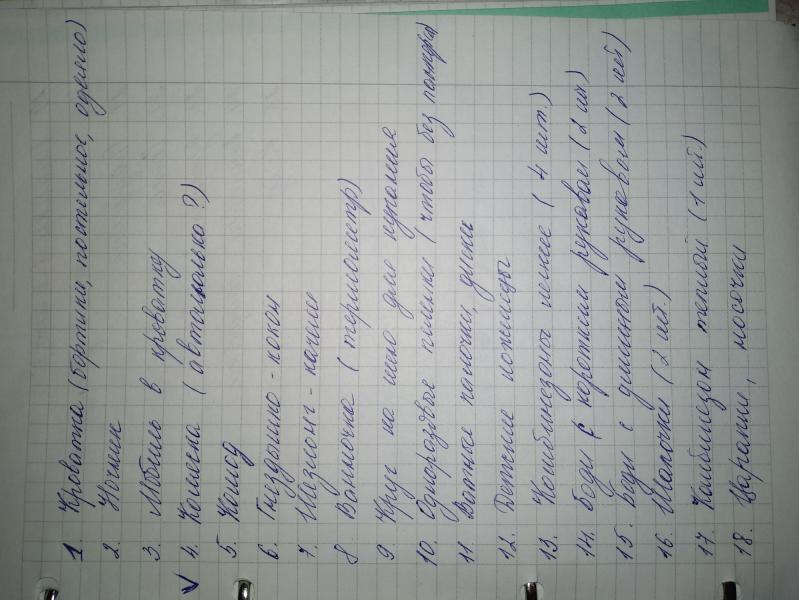 1. Кроватка (бортики, постельное, одеяло)
2. Ночник
3. Мобиль в кроватку
4. Коляска (автолюлько?)
5. Комод
6. Гнёздышко - кокон
7. Шезлонг - качели
8. Ванночка (термометр)
9. Круг на шею для купания
10. Одноразовые пелёнки (чтобы без
11. Ватные палочки, диски
12. Детские ножницы
13. Комбинезоны легкие (4 шт.)
14. Боди с коротким рукавом (2 шт.)
15. Боди с длинным рукавом (2 шт.)
16. Шапочки (2 шт.)
17. Комбинезон теплый (1 шт.)
18. Царапки, носочки